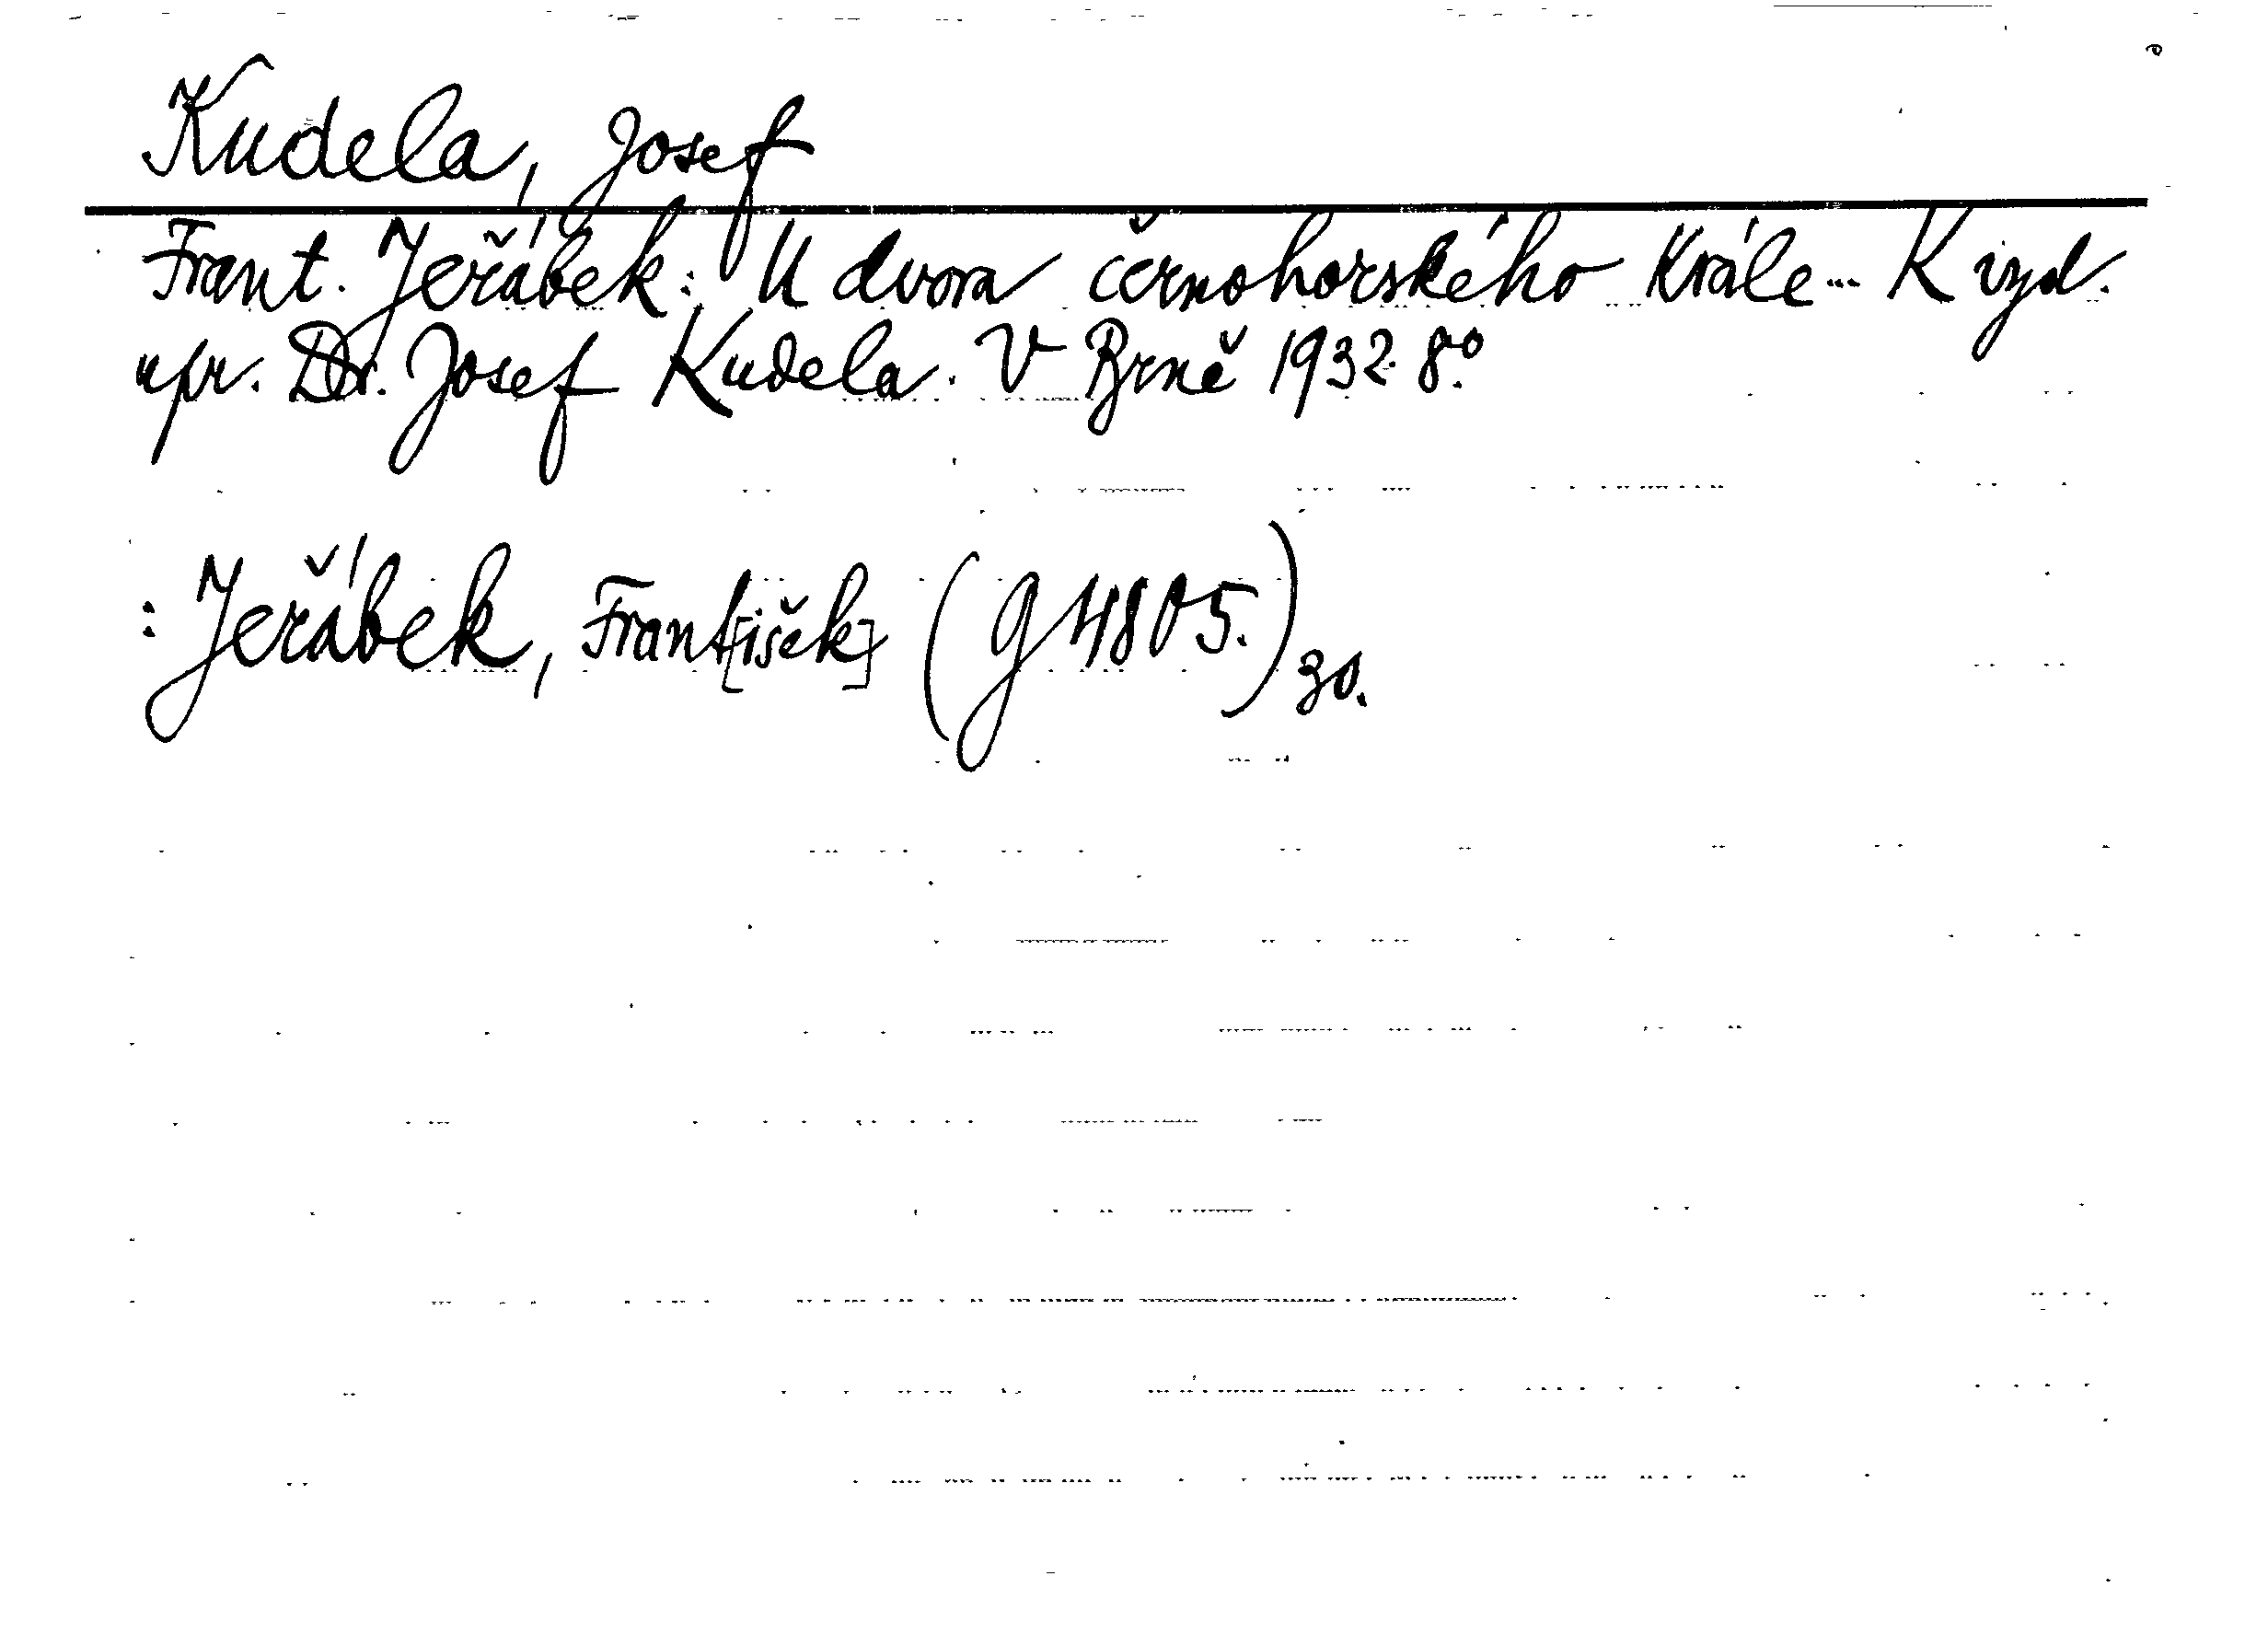 Kudela, Josef
Frant. Jeřábek: U dvora černohorského krále... K vyd.
upr. Dr. Josef Kudela. V Brně 1932. 8º.
: Jeřábek, Frant[išek] (g 4805.) 30.